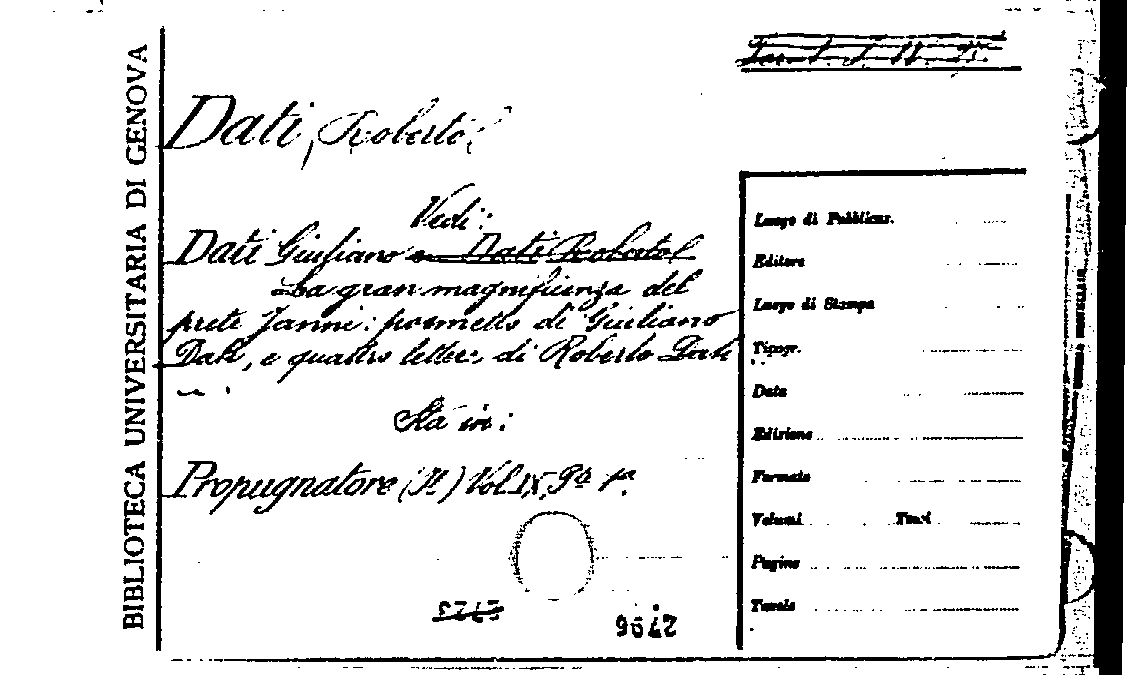 BIBLIOTECA UNIVERSITARIA DI GENOVA
Dati, Roberto
Vedi:
Dati Giuliano e Dati Roberto
La gran magnificenza del
prete Janni: poemetto di Giuliano
Dati, e quattro lettere di Roberto Dati
Sta in:
Propugnatore (Il) Vol. IX, Pa 1a.
2723
2796
Luogo di Pubblicaz.
Editore
Luogo di Stampa
Tipogr.
Data
Edizione
Formato
Volumi Tomi
Pagine
Tavole